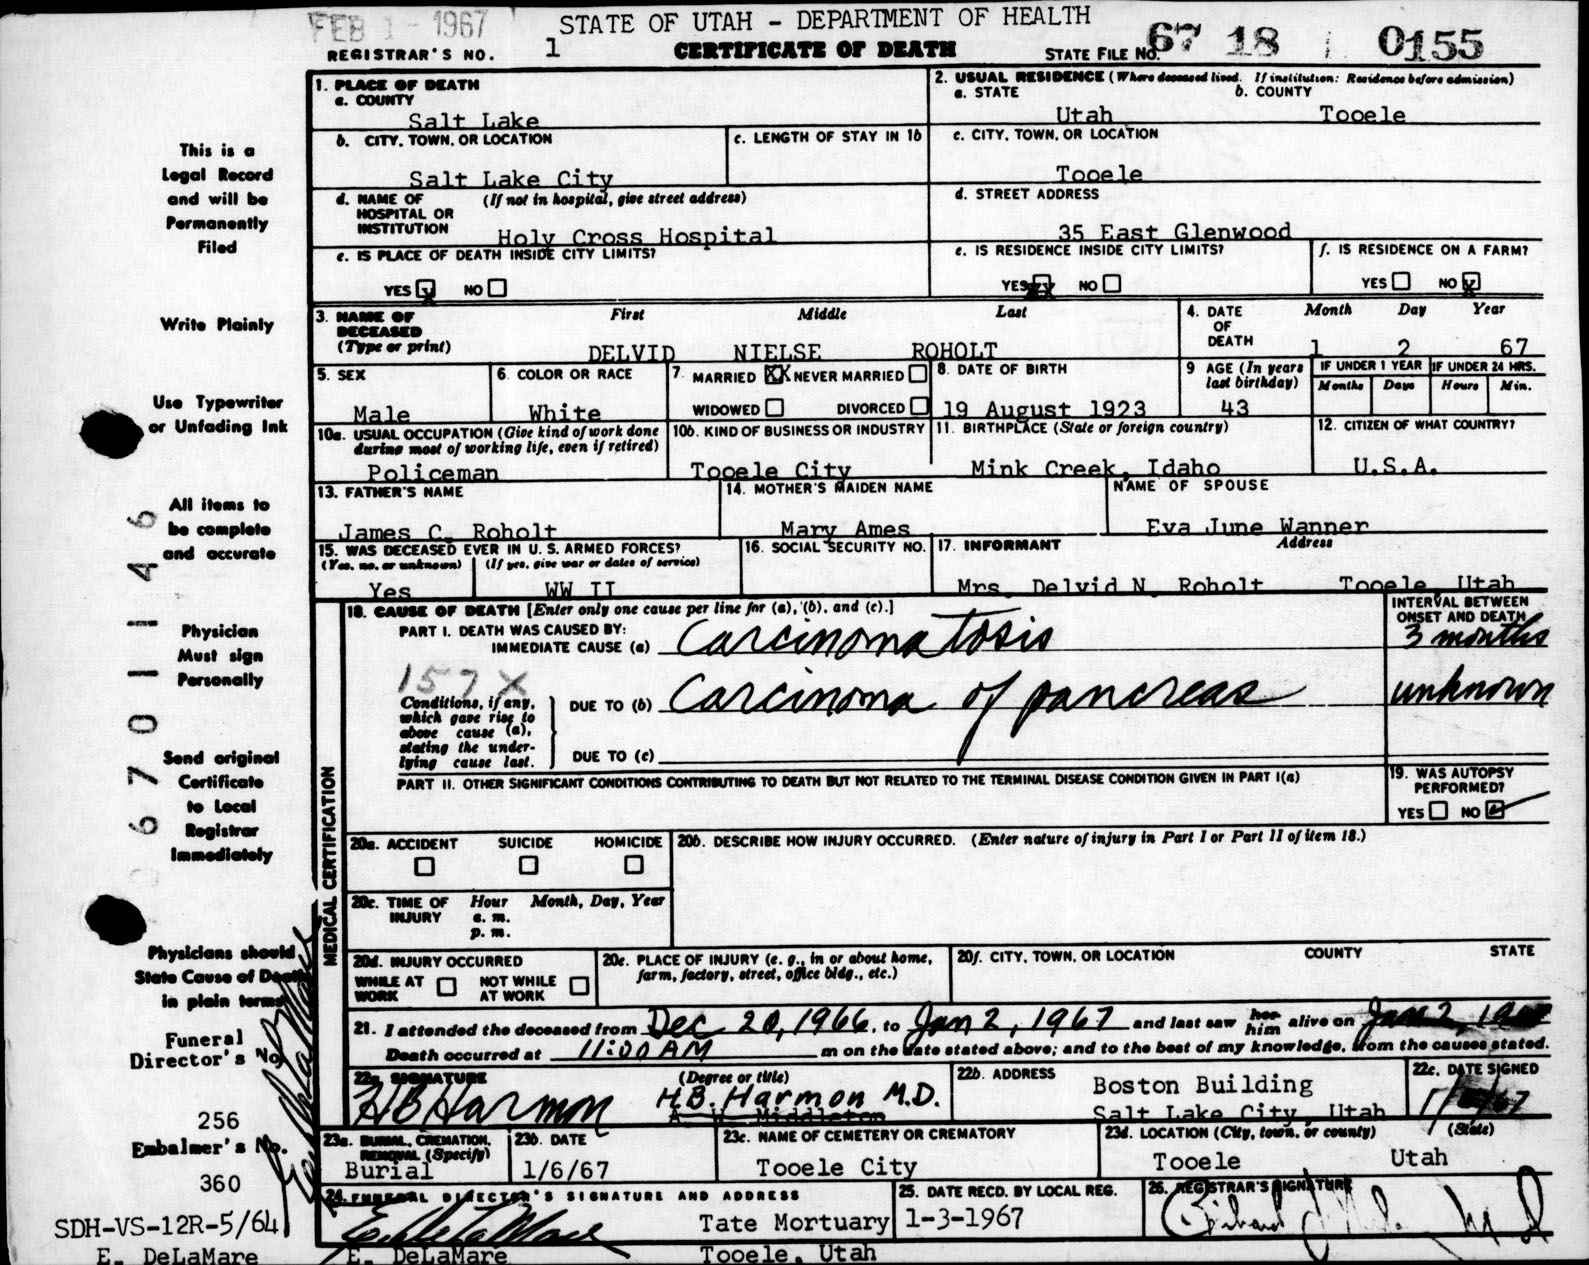 FEB 1 - 1967 STATE OF UTAH - DEPARTMENT OF HEALTH
REGISTRAR'S NO. 1 CERTIFICATE OF DEATH STATE FILE NO. 67 18 0155
1. PLACE OF DEATH
a. COUNTY
Salt Lake
2. USUAL RESIDENCE (Where deceased lived. If institution: Residence before admission)
a. STATE b. COUNTY
Utah Tooele
b. CITY, TOWN, OR LOCATION
Salt Lake City
c. LENGTH OF STAY IN 1b
c. CITY, TOWN, OR LOCATION
Tooele
d. NAME OF (If not in hospital, give street address)
HOSPITAL OR
INSTITUTION Holy Cross Hospital
d. STREET ADDRESS
35 East Glenwood
e. IS PLACE OF DEATH INSIDE CITY LIMITS?
YES X NO
e. IS RESIDENCE INSIDE CITY LIMITS?
YES XX NO
f. IS RESIDENCE ON A FARM?
YES NO X
3. NAME OF First Middle Last
DECEASED
(Type or print) DELVID NIELSE ROHOLT
4. DATE Month Day Year
OF
DEATH 1 2 67
5. SEX
Male
6. COLOR OR RACE
White
7. MARRIED XX NEVER MARRIED
WIDOWED DIVORCED
8. DATE OF BIRTH
19 August 1923
9 AGE (In years
last birthday)
43
IF UNDER 1 YEAR IF UNDER 24 HRS.
Months Days Hours Min.
10a. USUAL OCCUPATION (Give kind of work done
during most of working life, even if retired)
Policeman
10b. KIND OF BUSINESS OR INDUSTRY
Tooele City
11. BIRTHPLACE (State or foreign country)
Mink Creek, Idaho
12. CITIZEN OF WHAT COUNTRY?
U.S.A.
13. FATHER'S NAME
James C. Roholt
14. MOTHER'S MAIDEN NAME
Mary Ames
NAME OF SPOUSE
Eva June Wanner
15. WAS DECEASED EVER IN U. S. ARMED FORCES?
(Yes, no, or unknown) (If yes, give war or dates of service)
Yes WW II
16. SOCIAL SECURITY NO.
17. INFORMANT Address
Mrs. Delvid N. Roholt Tooele, Utah
MEDICAL CERTIFICATION
18. CAUSE OF DEATH [Enter only one cause per line for (a), (b), and (c).]
PART I. DEATH WAS CAUSED BY:
IMMEDIATE CAUSE (a) Carcinomatosis
INTERVAL BETWEEN
ONSET AND DEATH
3 months
157 X
Conditions, if any,
which gave rise to
above cause (a),
stating the under-
lying cause last.
DUE TO (b) Carcinoma of pancreas unknown
DUE TO (c)
PART II. OTHER SIGNIFICANT CONDITIONS CONTRIBUTING TO DEATH BUT NOT RELATED TO THE TERMINAL DISEASE CONDITION GIVEN IN PART I(a)
19. WAS AUTOPSY
PERFORMED?
YES NO ✓
20a. ACCIDENT SUICIDE HOMICIDE
20b. DESCRIBE HOW INJURY OCCURRED. (Enter nature of injury in Part I or Part II of item 18.)
20c. TIME OF Hour Month, Day, Year
INJURY a. m.
p. m.
20d. INJURY OCCURRED
WHILE AT NOT WHILE
WORK AT WORK
20e. PLACE OF INJURY (e. g., in or about home,
farm, factory, street, office bldg., etc.)
20f. CITY, TOWN, OR LOCATION COUNTY STATE
21. I attended the deceased from Dec 20, 1966, to Jan 2, 1967 and last saw her him alive on Jan 2, 1967
Death occurred at 11:00 AM m on the date stated above; and to the best of my knowledge, from the causes stated.
22a. SIGNATURE (Degree or title)
HB Harmon H.B. Harmon M.D.
A. W. Middleton
22b. ADDRESS Boston Building
Salt Lake City, Utah
22c. DATE SIGNED
23a. BURIAL, CREMATION,
REMOVAL (Specify)
Burial
23b. DATE
1/6/67
23c. NAME OF CEMETERY OR CREMATORY
Tooele City
23d. LOCATION (City, town, or county) (State)
Tooele Utah
24. FUNERAL DIRECTOR'S SIGNATURE AND ADDRESS
E DeLaMare Tate Mortuary
E. DeLaMare Tooele, Utah
25. DATE RECD. BY LOCAL REG.
1-3-1967
26. REGISTRAR'S SIGNATURE
This is a
Legal Record
and will be
Permanently
Filed
Write Plainly
Use Typewriter
or Unfading Ink
All items to
be complete
and accurate
Physician
Must sign
Personally
Send original
Certificate
to Local
Registrar
Immediately
Physicians should
State Cause of Death
in plain terms
Funeral
Director's No.
256
Embalmer's No.
360
SDH-VS-12R-5/64
E. DeLaMare
67011146